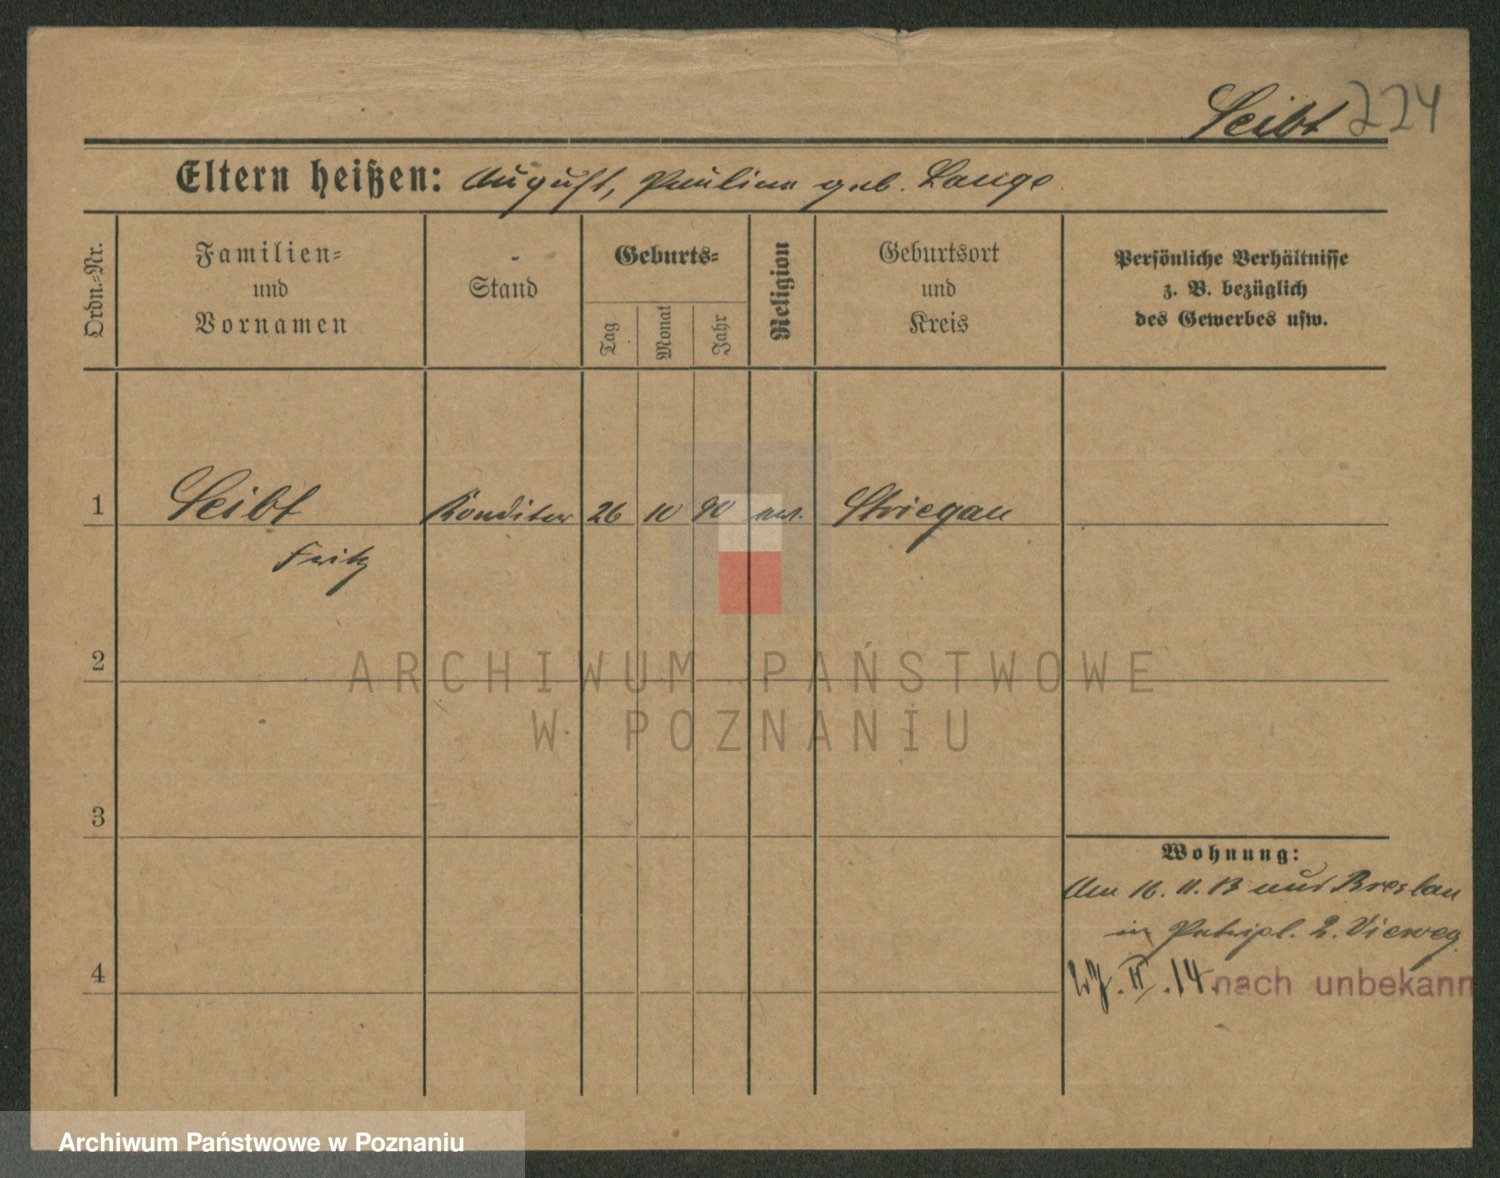 Seibt 224
Eltern heißen: August, Pauline geb. Lange.
Ordn.-Nr.
Familien-
und
Vornamen
Stand
Geburts-
Tag
Monat
Jahr
Religion
Geburtsort
und
Kreis
Persönliche Verhältnisse
z. B. bezüglich
des Gewerbes usw.
1 Seibt Konditor 26 10 90 Striegau
Fritz
2
ARCHIWUM PAŃSTWOWE
W POZNANIU
3
Wohnung:
Am 16. 11. 13 aus Breslau
in Petripl. 2. Vieweg
4
27. II. 14. nach unbekann
Archiwum Państwowe w Poznaniu